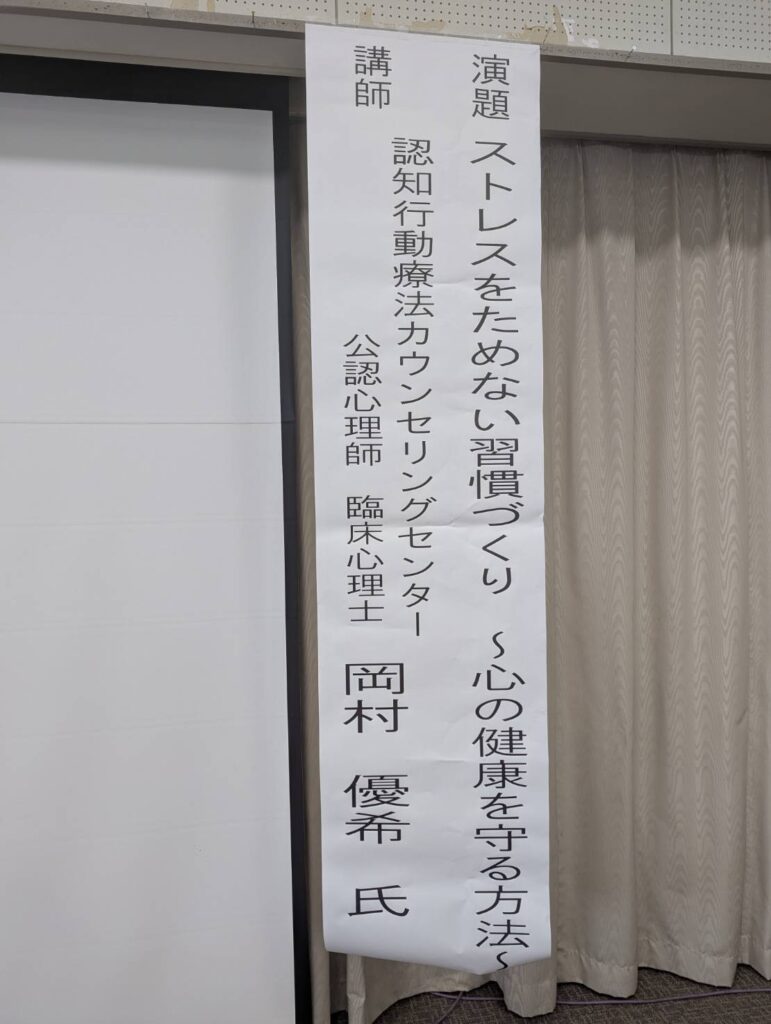 演題 ストレスをためない習慣づくり ～心の健康を守る方法～
講師 認知行動療法カウンセリングセンター
公認心理師 臨床心理士 岡村 優希 氏